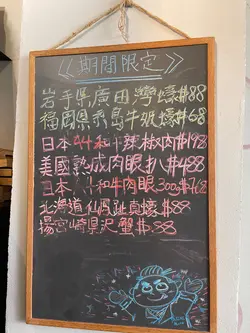 《期間限定》
岩手県廣田灣蠔$88
福岡県糸島牛蠔$68
日本A4和牛辣椒肉$198
美國熟成肉眼扒$488
日本 和牛肉眼300g$768
北海道仙鳳趾真蠔$88
揚宮崎県沢蟹$88